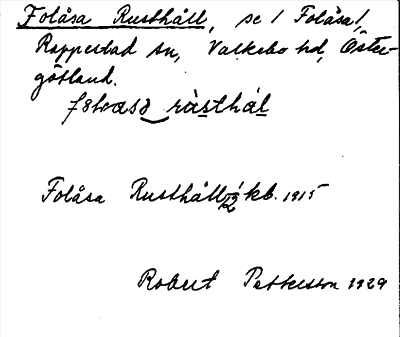 Folåsa Rusthåll, se / Folåsa /,
Rappestad sn, Valkebo hd, Öster-
götland.
Folåsa Rusthåll 1/2 kb. 1915
Robert Pettersson 1929